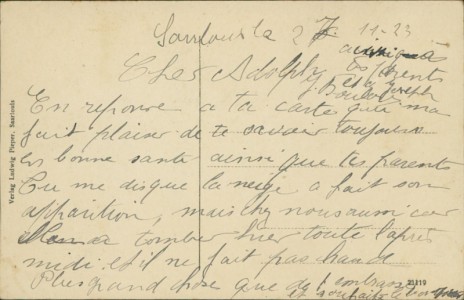 27-11-23
Cher Adolphe
En reponse a ta carte qui ma
fait plaisir de te savoir toujours
en bonne santé ainsi que tes parents
Tu me dis que la neige a fait son
apparition, mais chez nous aussi car
tomber hier toute l'après
midi et il ne fait pas chaud
Plus grand chose que de t embrasser
et souhaite le bonjour
ainsi qua
tes parents
et Joseph
Verlag Ludwig Pieper, Saarlouis
21119